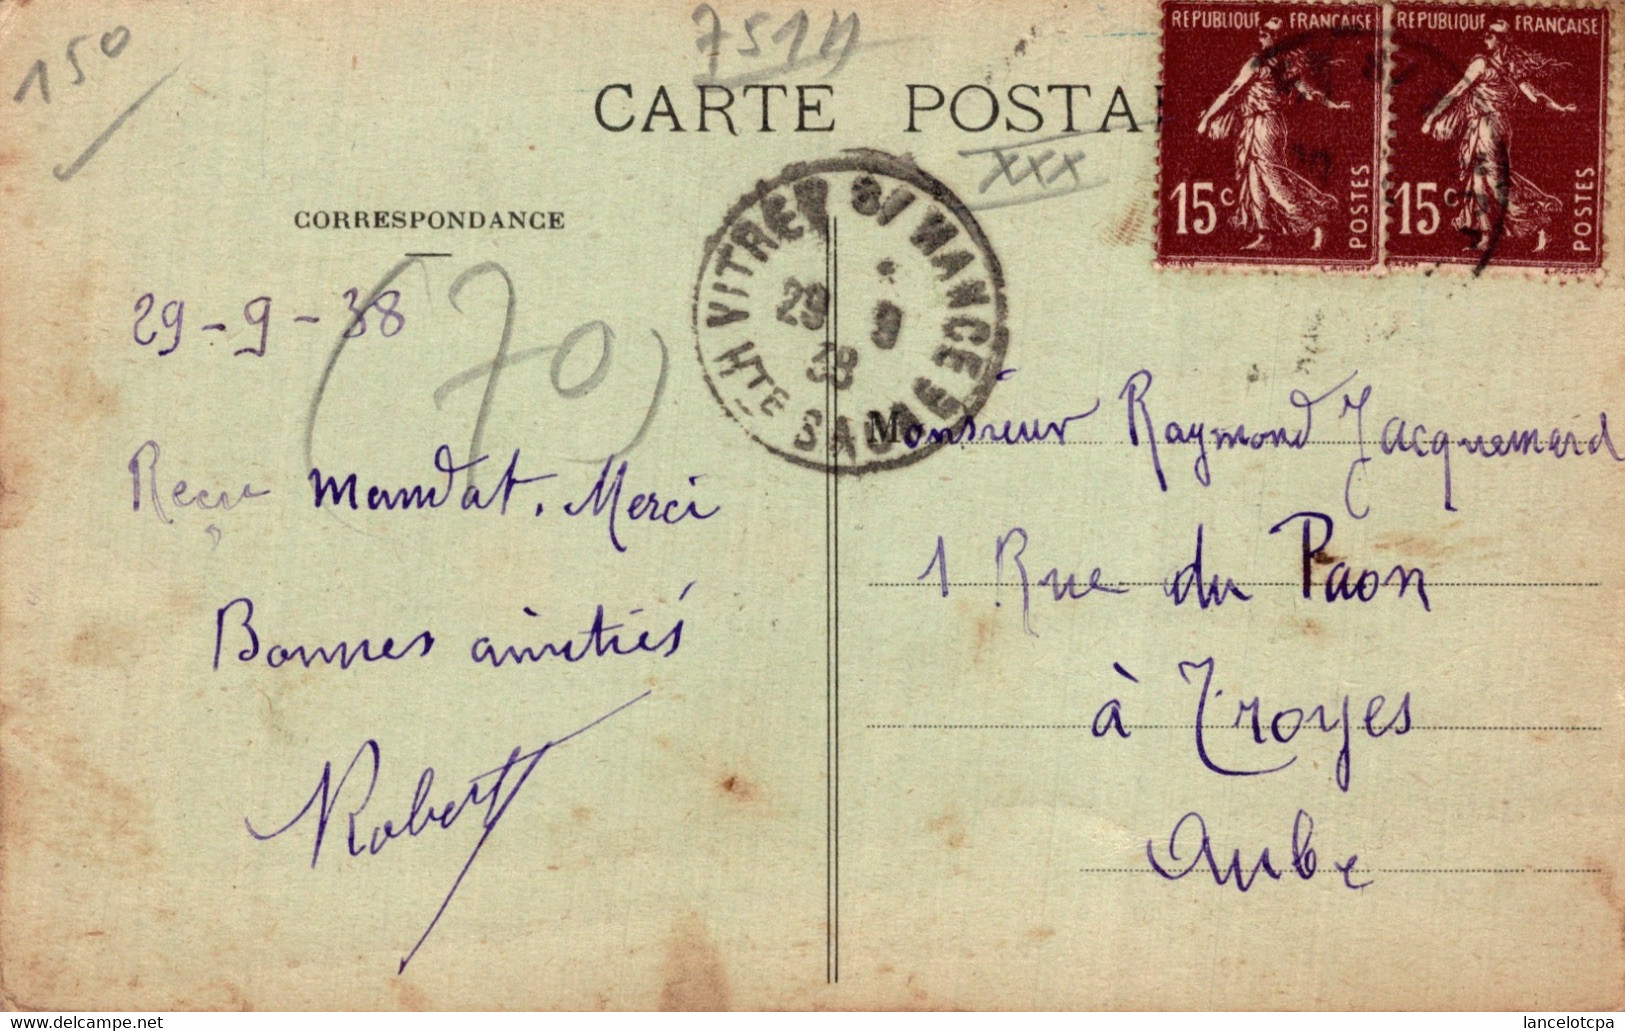 150
7511
CARTE POSTA
XXX
RÉPUBLIQUE FRANÇAISE
15c
POSTES
RÉPUBLIQUE FRANÇAISE
15c
POSTES
VITREY S/ MANCE
29 9
38
Hte SAONE
CORRESPONDANCE
29-9-38
(70)
Reçu mandat. Merci
Bonnes amitiés
Robert
Monsieur Raymond Jacquemard
1 Rue du Paon
à Troyes
Aube
lancelotcpa